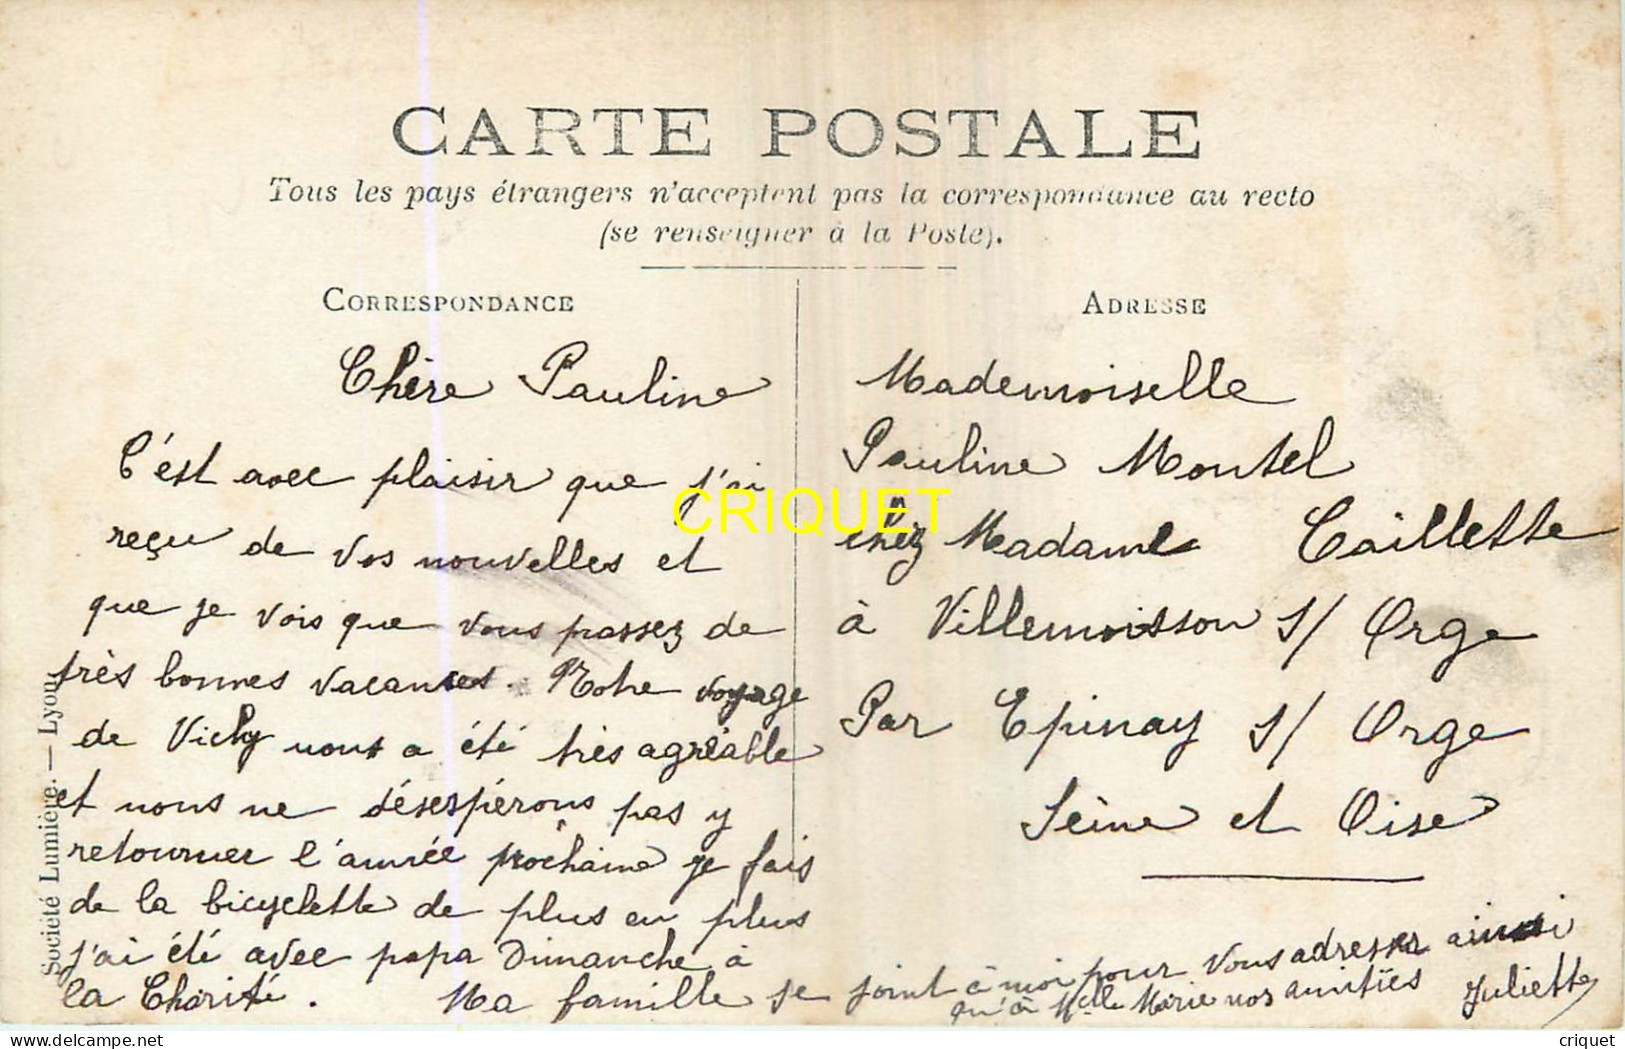 CARTE POSTALE
Tous les pays étrangers n'acceptent pas la correspondance au recto
(se renseigner à la Poste).
CORRESPONDANCE
Chère Pauline
C'est avec plaisir que j'ai
reçu de vos nouvelles et
que je vois que vous passez de
très bonnes vacances. Notre voyage
de Vichy nous a été très agréable
et nous ne désespérons pas y
retourner l'année prochaine je fais
de la bicyclette de plus en plus
j'ai été avec papa Dimanche à
la Charité. Ma famille se joint à moi pour vous adresser ainsi
qu'à Melle Marie nos amitiés Juliette
ADRESSE
Mademoiselle
Pauline Montel
chez Madame Caillette
à Villemoisson s/ Orge
Par Epinay s/ Orge
Seine et Oise
Société Lumière. — Lyon.
CRIQUET
criquet